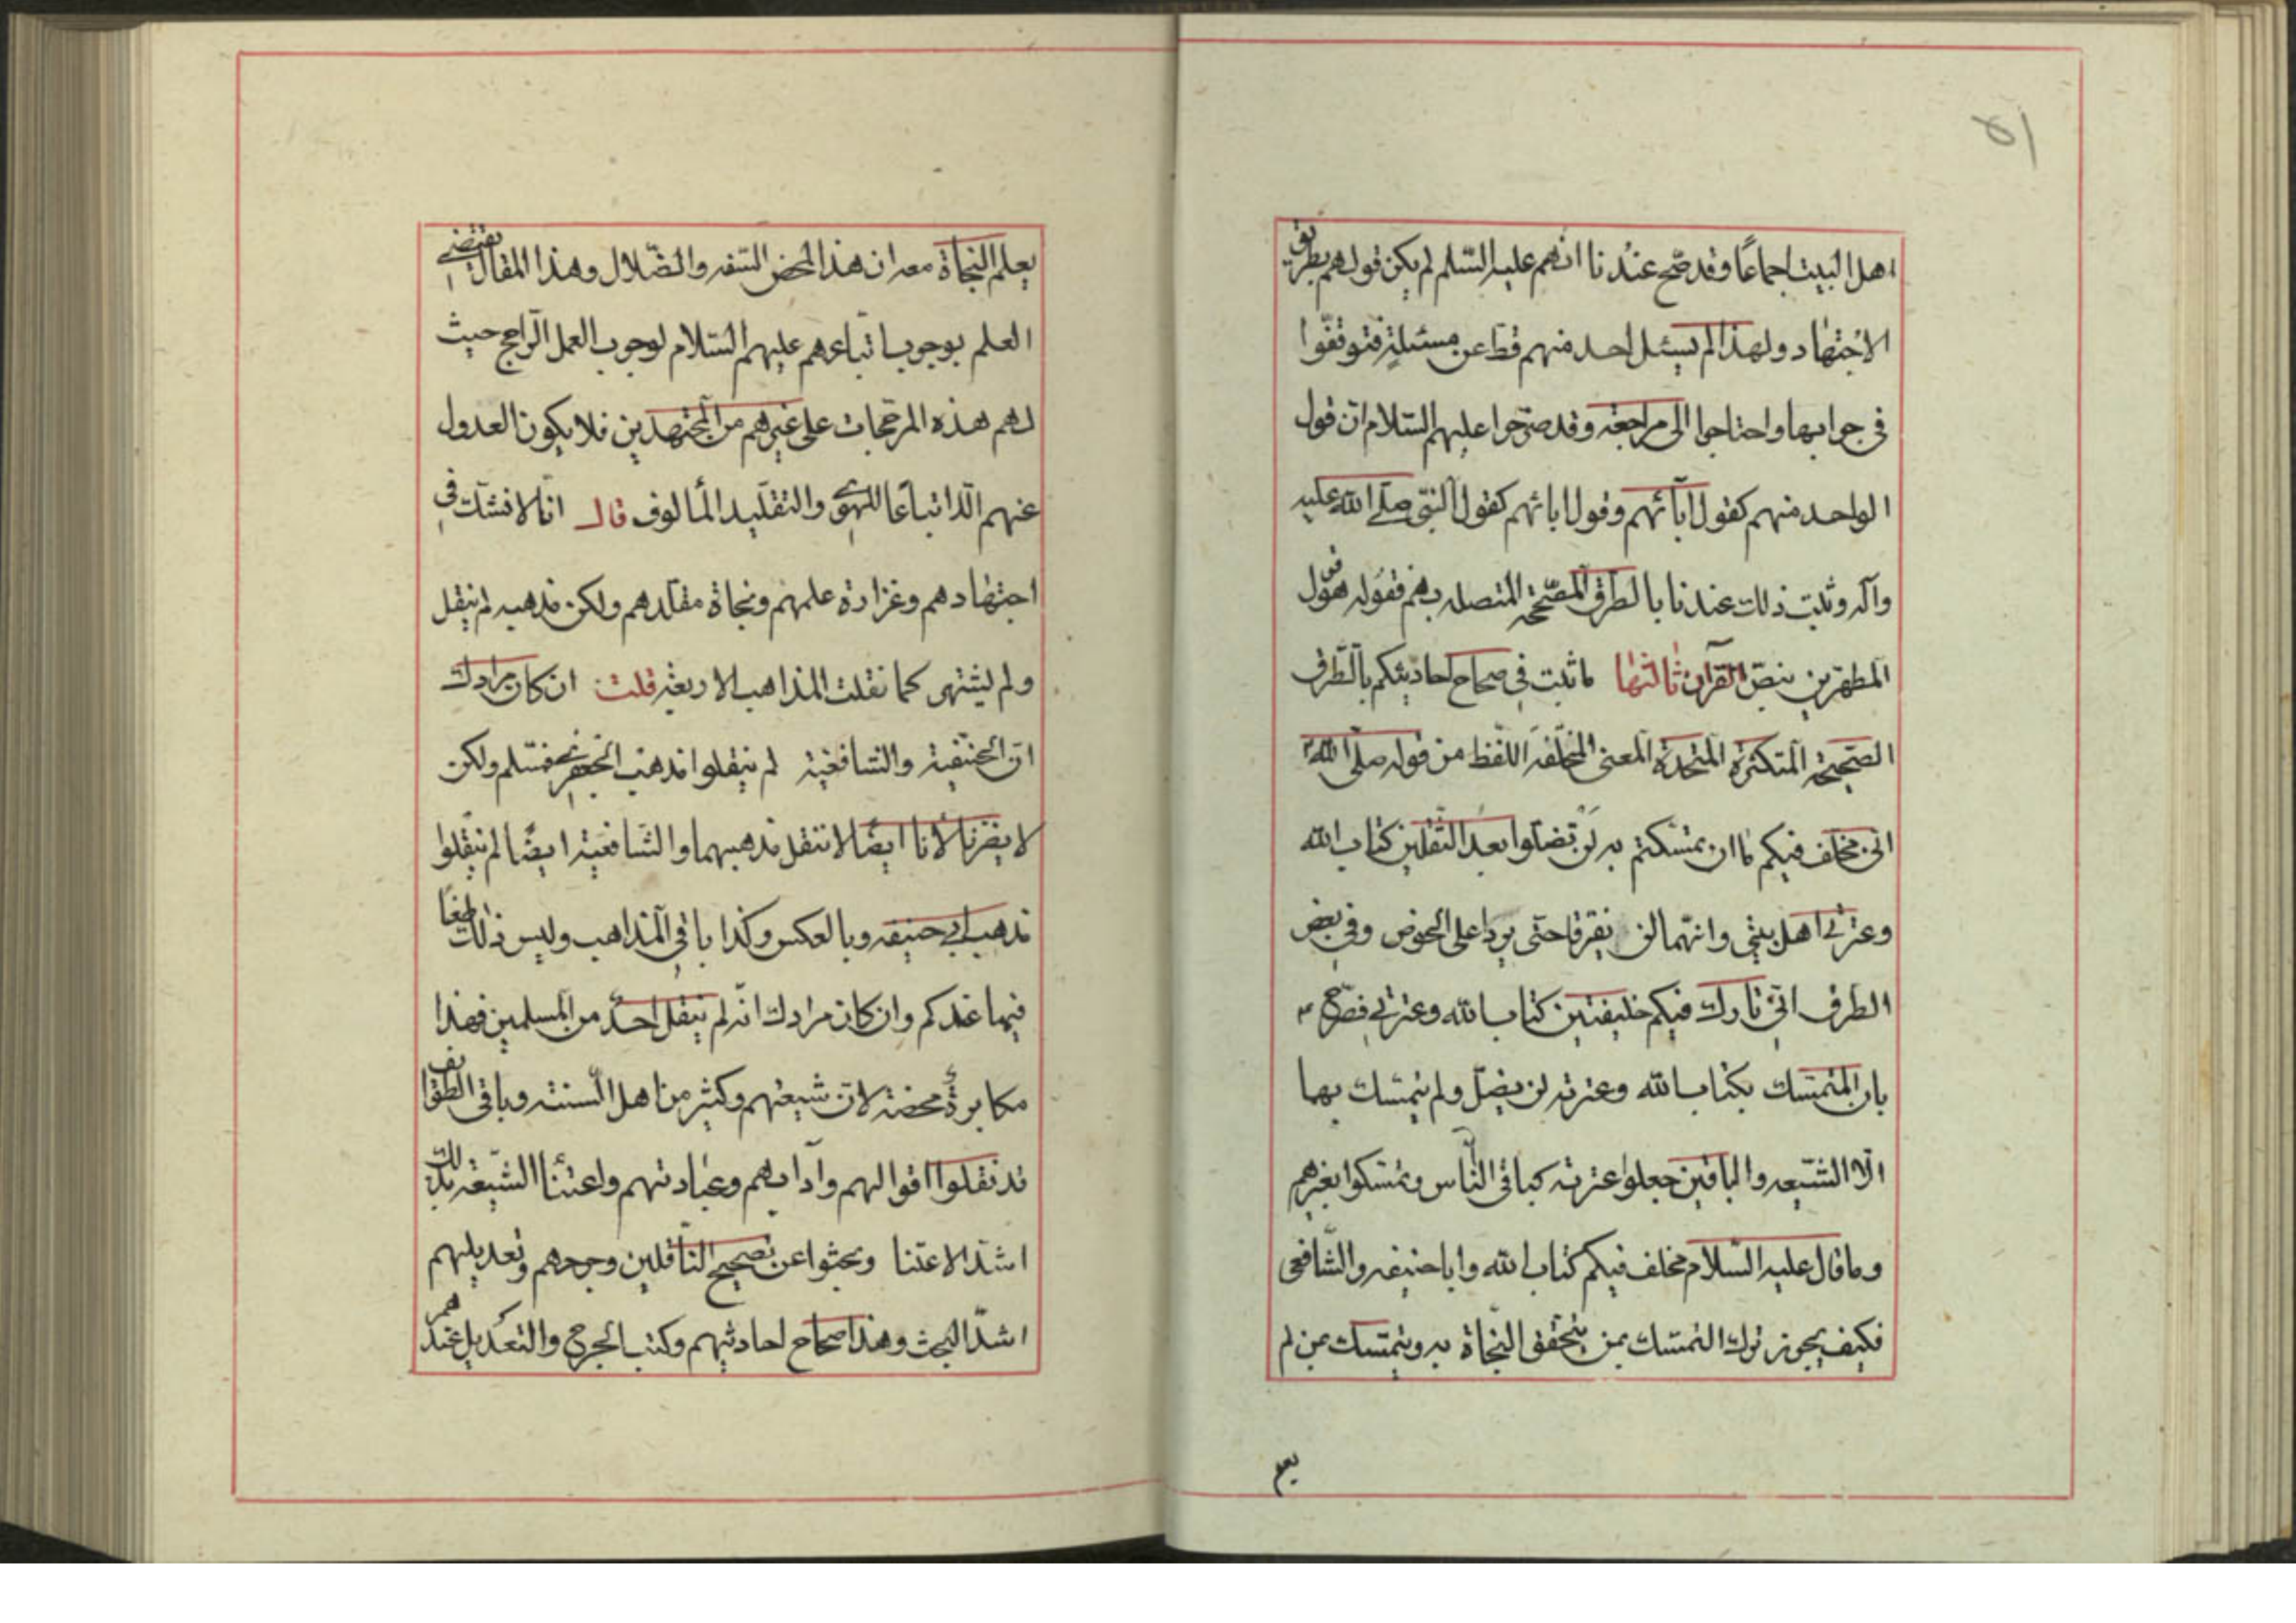 ٥١
اهل البيت اجماعًا وقد صح عندنا انهم عليه السّلم لم يكن قولهم بطريق
الاجتهاد ولهذا لم يسئل احد منهم قط عن مسئلة فتوقفوا
فى جوابها واحتاجوا الى مراجعة وقد صرّحوا عليهم السّلام ان قول
الواحد منهم كقول آبائهم وقول ابائهم كقول النبى صلّے الله عليه
وآله وثبت ذلك عندنا بالطرق المصحّحة المتصله بهم فقوله هو قول
المطهرين بنصّ القرآن ثالثها ما ثبت فى صحاح احاديثكم بالطرق
الصّحيحة المتكثرة المتحدة المعنى المختلفة اللّفظ من قوله صلّى الله
انى مخلف فيكم ما ان تمسّكتم به لن تضلّوا بعد الثّقلين كتاب الله
وعترتى اهل بيتى وانّهما لن يفترقا حتّى يردا على الحوض وفى بعض
الطرق انّى تارك فيكم خليفتين كتاب الله وعترتى فصّرح
بان المتمسّك بكتاب الله وعترته لن يضلّ ولم يتمسّك بهما
الّا الشّيعه والباقين جعلوا عترته كباقى النّاس وتمسّكوا بغيرهم
وما قال عليه السّلام مخلف فيكم كتاب الله وابا حنيفه والشّافعى
فكيف يجوز ترك التمسّك بمن يتحقق النّجاة به ويتمسّك بمن لم
يعلم
يعلم النجاة معه ان هذا المحض السّفه والضّلال وهذا المقال يقتضے
العلم بوجوب اتّباعهم عليهم السّلام لوجوب العمل الرّاجح حيث
لهم هذه المرجّحات على غيرهم من المجتهدين فلا يكون العدول
عنهم الّا اتباعًا للهوے والتقليد المألوف قال انّا لا نشكّ فى
اجتهادهم وغزارة علمهم ونجاة مقلّدهم ولكن مذهبه لم ينقل
ولم يشتهى كما نقلت المذاهب الاربعة قلت ان كان مرادك
انّ الحنفية والشافعية لم ينقلوا مذهب الجعفرے فمسّلم ولكن
لا يضرّنا لأنا ايضًا لا ننقل مذهبهما والشّافعية ايضًا لم ينقلوا
مذهب ابى حنيفه وبالعكس وكذا باقى المذاهب وليس ذلك طعنًا
فيما عندكم وان كان مرادك انّه لم ينقل احدٌ من المسلمين فهذا
مكابرة محضة لانّ شيعتهم وكثير من اهل السنّته وباقى الطوايف
قد نقلوا اقوالهم وآدابهم وعباداتهم واعتنأ الشّيعة بذلك
اشدّ الاعتنا وبحثوا عن تصحيح النّاقلين وجرحهم وتعديلهم
اشدّ البحث وهذا صحاح احاديثهم وكتب الجرح والتعديل عندهم